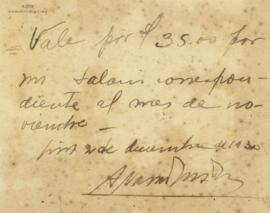 Vale por $ 35.00 por
mi salario correspon-
diente al mes de no-
viembre —
de diciembre de 1930